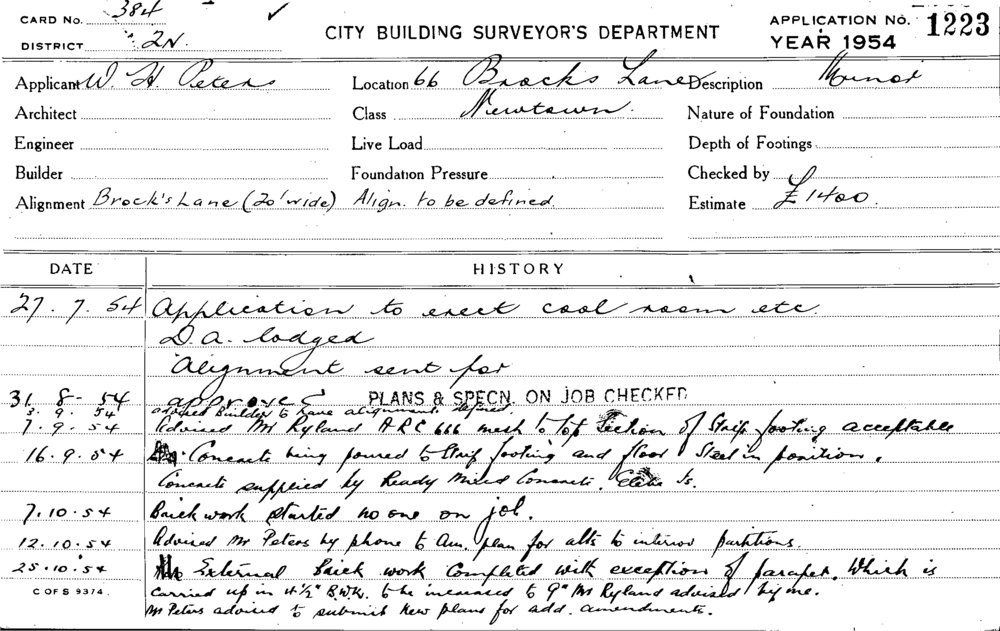 CARD No. 384 ✓
DISTRICT 2N.
CITY BUILDING SURVEYOR'S DEPARTMENT
APPLICATION No. 1223
YEAR 1954
Applicant W. H. Peters Location 66 Brocks Lane Description Minor
Architect Class Newtown. Nature of Foundation
Engineer Live Load Depth of Footings
Builder Foundation Pressure Checked by
Alignment Brock's Lane (20' wide) Align. to be defined. Estimate £1400.
DATE HISTORY
27. 7. 54 Application to erect cool room etc.
D.A. lodged
Alignment sent for
31 8- 54 approved PLANS & SPECN. ON JOB CHECKED
3. 9. 54 advised Builder to have alignment defined.
7. 9. 54 Advised Mr Ryland ARC 666 mesh to top section of Strip footing acceptable
16. 9. 54 Concrete being poured to Strip footing and floor Steel in position.
Concrete supplied by Ready Mixed Concrete.
7. 10. 54 Brickwork started no one on job.
12. 10. 54 Advised Mr Peters by phone to Am. plan for alts to interior partitions.
25. 10. 54 External brick work Completed with exception of parapet. Which is
carried up in 4½" B.Wk. to be increased to 9" Mr Ryland advised by me.
Mr Peters advised to submit new plans for add. amendments.
C OF S 9374.